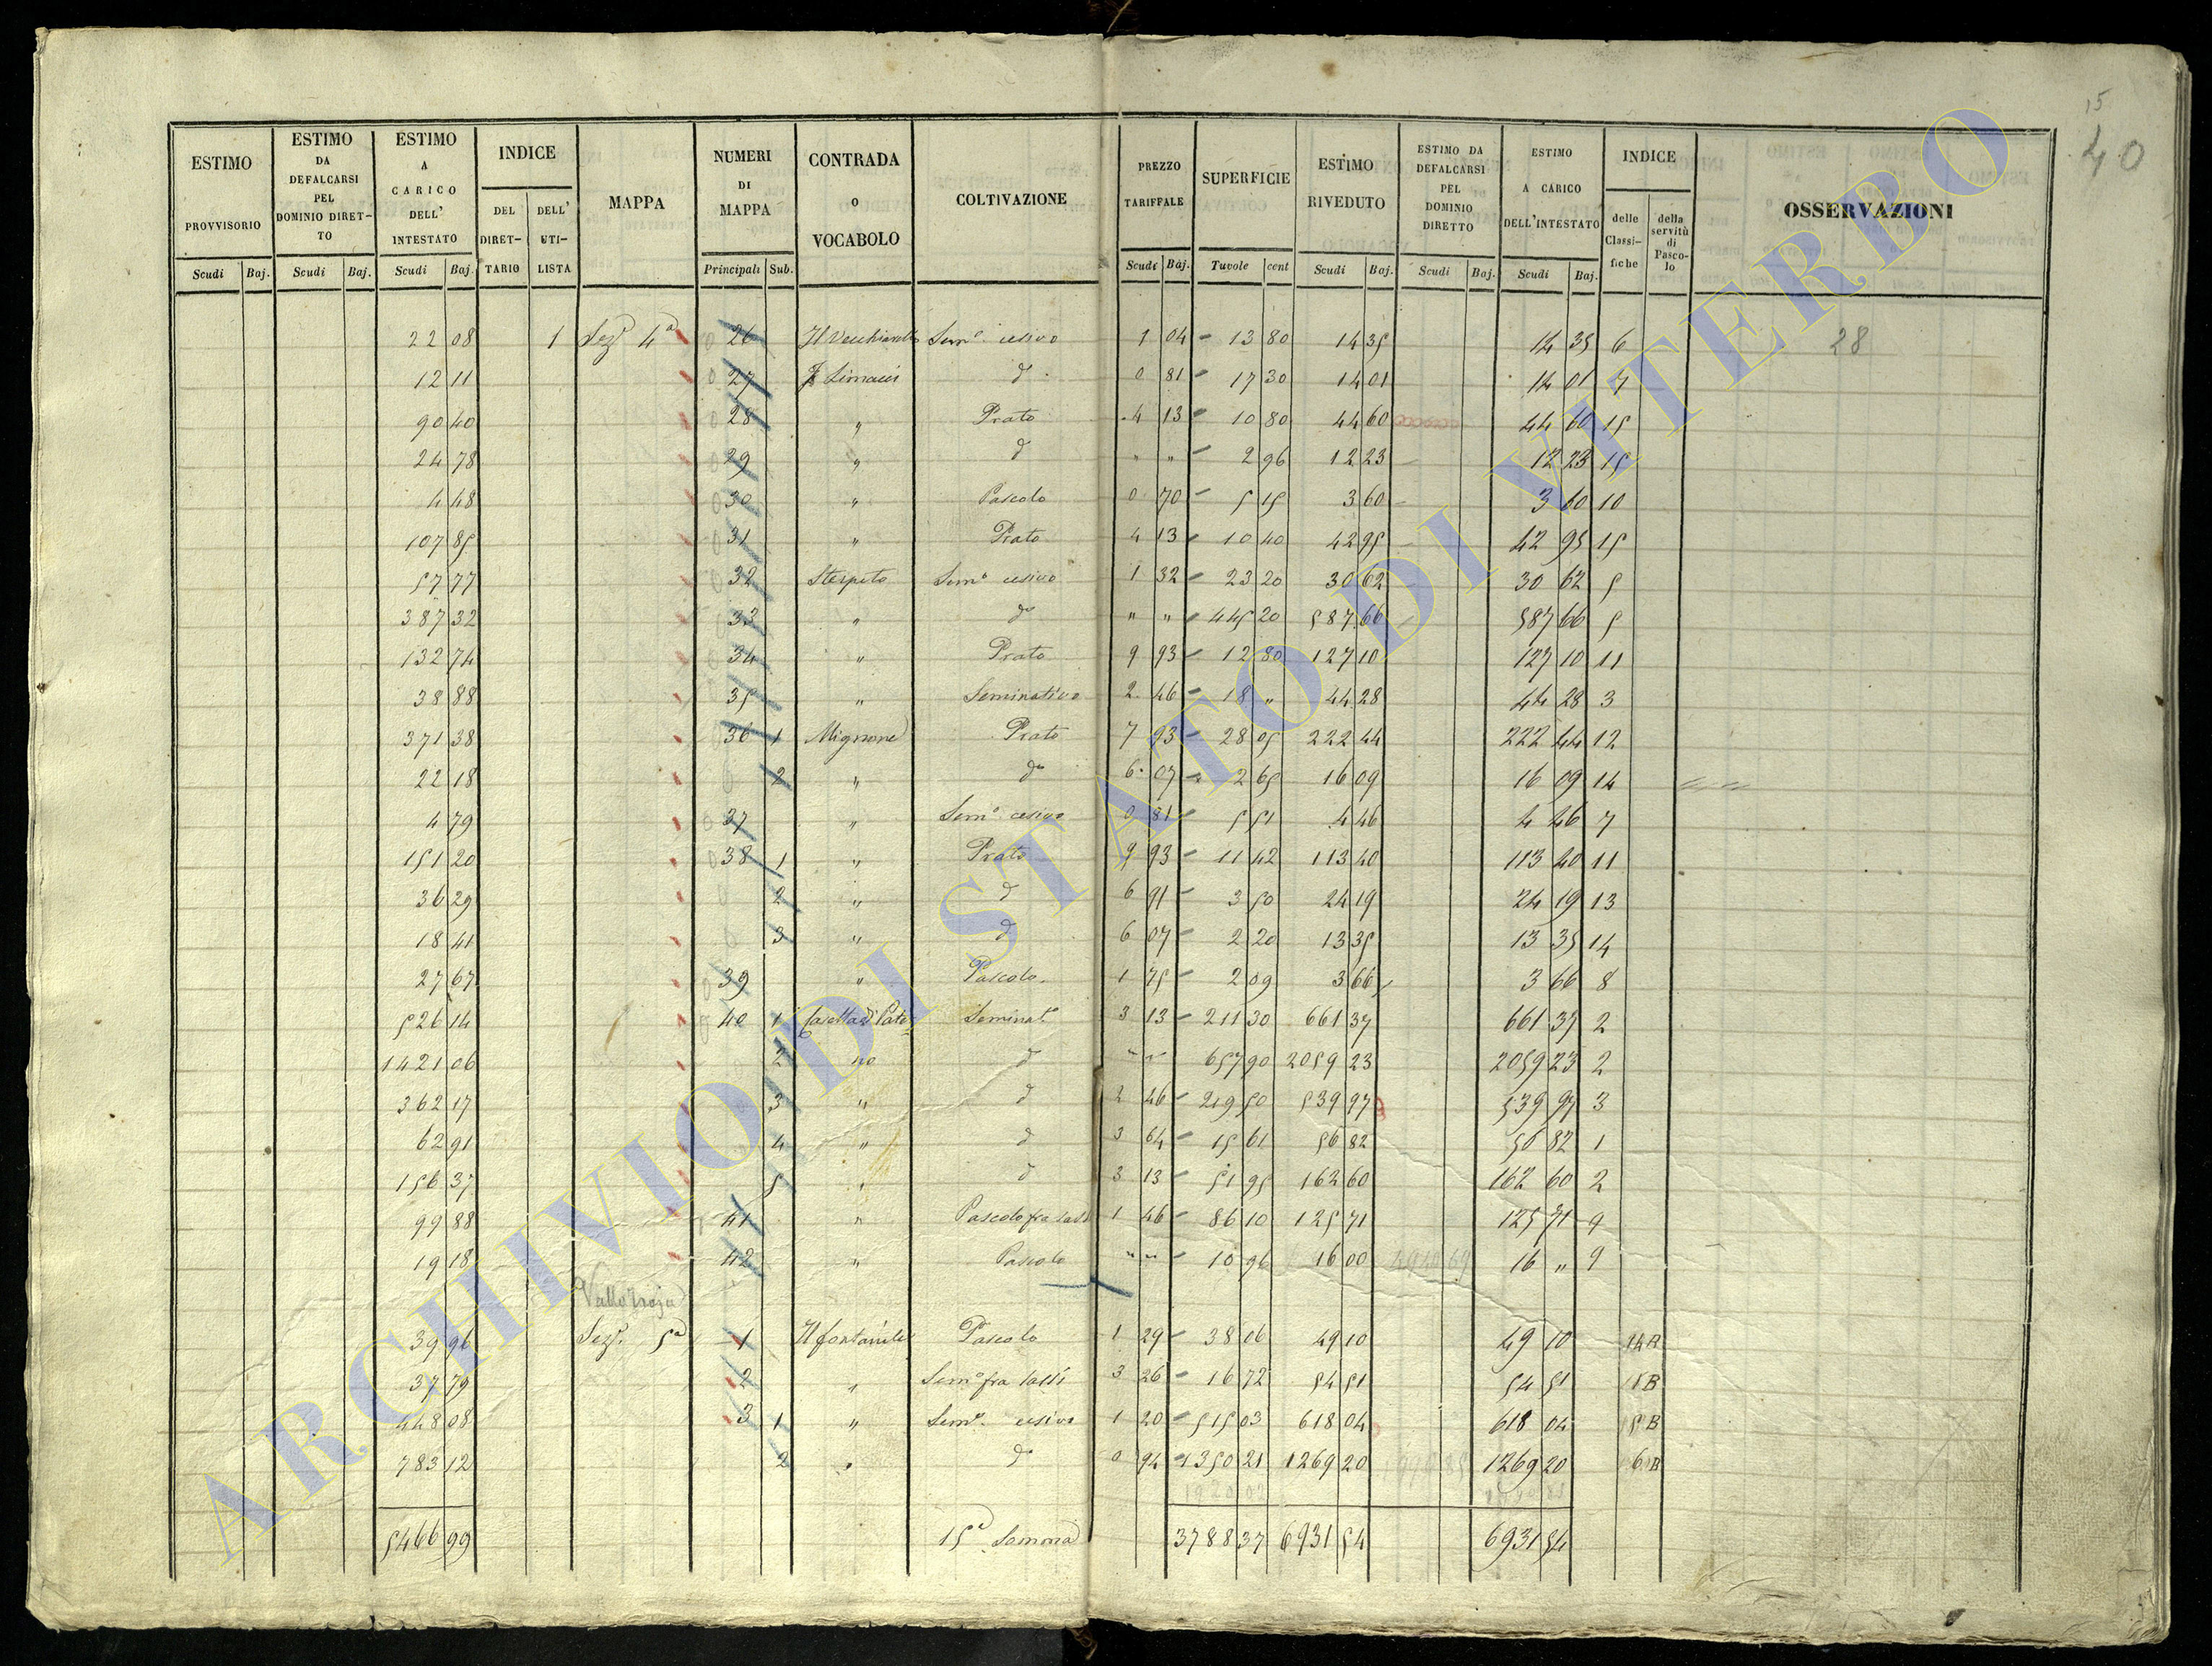 15
40
ESTIMO PROVVISORIO | ESTIMO DA DEFALCARSI PEL DOMINIO DIRETTO | ESTIMO A CARICO DELL' INTESTATO | INDICE DEL DIRETTARIO | DELL' UTILISTA | MAPPA | NUMERI DI MAPPA | CONTRADA O VOCABOLO | COLTIVAZIONE | PREZZO TARIFFALE | SUPERFICIE | ESTIMO RIVEDUTO | ESTIMO DA DEFALCARSI PEL DOMINIO DIRETTO | ESTIMO A CARICO DELL'INTESTATO | INDICE delle Classifiche | della servitù di Pascolo | OSSERVAZIONI
Scudi | Baj. | Scudi | Baj. | Scudi | Baj. | Principali | Sub. | Scudi | Baj. | Tavole | cent | Scudi | Baj. | Scudi | Baj. | Scudi | Baj.
22 08 | 1 | Seze 4a | 26 | Il Vecchiarello | Semo cesivo | 1 04 | 13 80 | 14 35 | 14 35 | 6 | 28
12 11 | 27 | Limacci | d | 0 81 | 17 30 | 14 01 | 14 01 | 7
90 40 | 28 | " | Prato | 4 13 | 10 80 | 44 60 | 44 60 | 15
24 78 | 29 | " | d | " " | 2 96 | 12 23 | 12 23 | 15
4 48 | 30 | " | Pascolo | 0 70 | 5 15 | 3 60 | 3 60 | 10
107 85 | 31 | " | Prato | 4 13 | 10 40 | 42 95 | 42 95 | 15
57 77 | 32 | Sterpeto | Semo cesivo | 1 32 | 23 20 | 30 62 | 30 62 | 5
387 32 | 33 | " | do | " " | 445 20 | 587 66 | 587 66 | 5
132 74 | 34 | " | Prato | 9 93 | 12 80 | 127 10 | 127 10 | 11
38 88 | 35 | " | Seminativo | 2 46 | 18 " | 44 28 | 44 28 | 3
371 38 | 36 | 1 | Mignone | Prato | 7 93 | 28 05 | 222 44 | 222 44 | 12
22 18 | 2 | " | do | 6 07 | 2 65 | 16 09 | 16 09 | 14
4 79 | 37 | " | Semo cesivo | 0 81 | 5 51 | 4 46 | 4 46 | 7
151 20 | 38 | 1 | " | Prato | 9 93 | 11 42 | 113 40 | 113 40 | 11
36 29 | 2 | " | d | 6 91 | 3 50 | 24 19 | 24 19 | 13
18 41 | 3 | " | d | 6 07 | 2 20 | 13 35 | 13 35 | 14
27 67 | 39 | " | Pascolo | 1 75 | 2 09 | 3 66 | 3 66 | 8
526 14 | 40 | 1 | Casetta di Pate- | Seminato | 3 13 | 211 30 | 661 37 | 661 37 | 2
1421 06 | 2 | no | d | " " | 657 90 | 2059 23 | 2059 23 | 2
362 17 | 3 | " | d | 2 46 | 219 50 | 539 97 | 539 97 | 3
62 91 | 4 | " | d | 3 64 | 15 61 | 56 82 | 56 82 | 1
156 37 | 5 | " | d | 3 13 | 51 95 | 162 60 | 162 60 | 2
99 88 | 41 | " | Pascolo fra sassi | 1 46 | 86 10 | 125 71 | 125 71 | 9
19 18 | 42 | " | Pascolo | " " | 10 96 | 16 00 | 16 " | 9
39 96 | Seze 5a | 1 | Il fontanile | Pascolo | 1 29 | 38 06 | 49 10 | 49 10 | 14 B
37 79 | 2 | " | Semo fra sassi | 3 26 | 16 72 | 54 51 | 54 51 | 1 B
448 08 | 3 | 1 | " | Semo cesivo | 1 20 | 515 03 | 618 04 | 618 04 | 5 B
783 12 | 2 | " | do | 0 94 | 1350 21 | 1269 20 | 1269 20 | 6 B
5466 99 | 15a Somma | 3788 37 | 6931 54 | 6931 54
ARCHIVIO DI STATO DI VITERBO